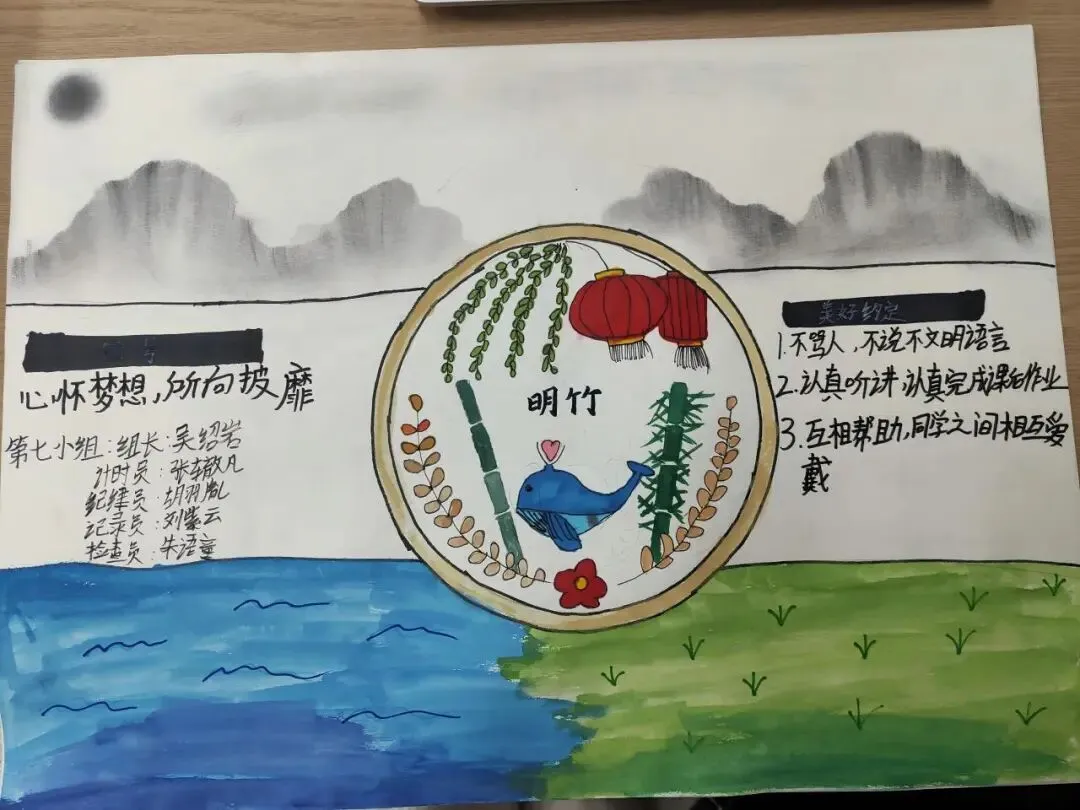 心怀梦想,所向披靡
第七小组:组长:吴绍岩
计时员:
纪律员:
记录员:刘紫云
检查员:朱语童
明竹
美好约定
1.不骂人,不说不文明语言
2.认真听讲,认真完成课后作业
3.互相帮助,同学之间相互爱
戴